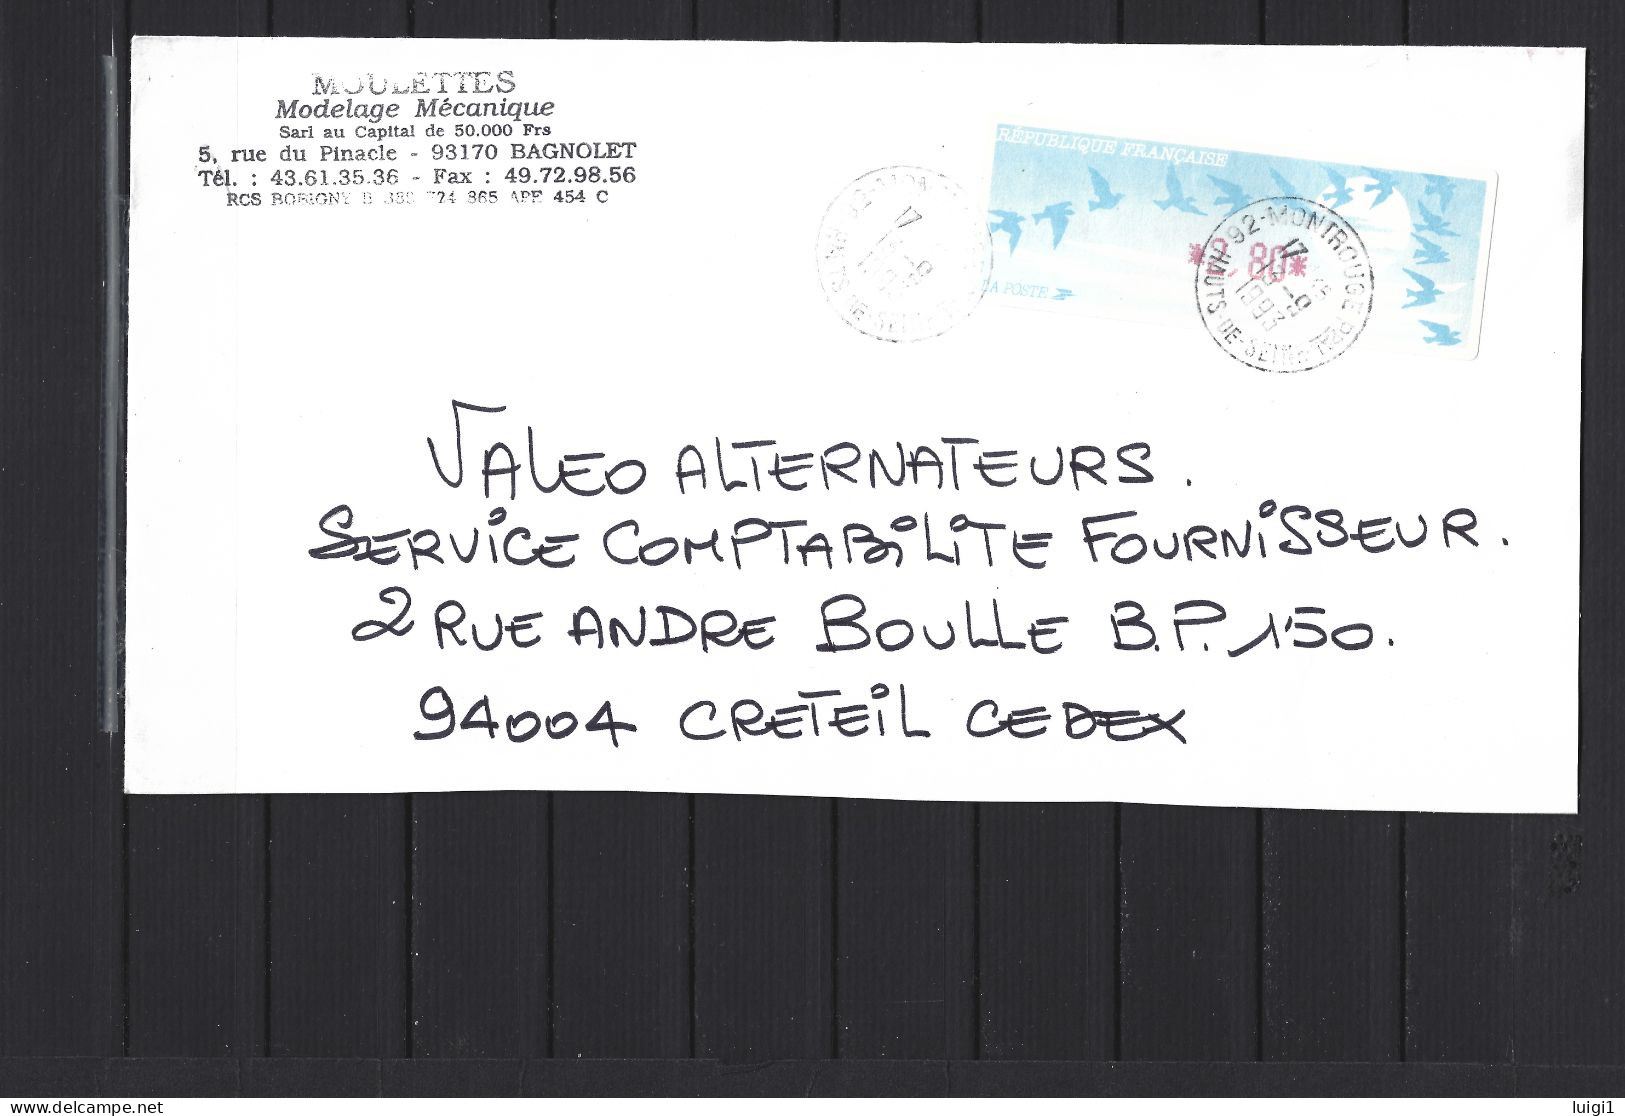 MOULETTES
Modelage Mécanique
Sarl au Capital de 50.000 Frs
5, rue du Pinacle - 93170 BAGNOLET
Tél. : 43.61.35.36 - Fax : 49.72.98.56
RCS BOBIGNY B 724 865 APE 454 C
RÉPUBLIQUE FRANÇAISE
*2,80*
LA POSTE
92-MONTROUGE PPAL
HAUTS-DE-SEINE
17
1993
17
HAUTS-DE-SEINE
VALEO ALTERNATEURS.
SERVICE COMPTABILITE FOURNISSEUR.
2 RUE ANDRE BOULLE B.P. 150.
94004 CRETEIL CEDEX
delcampe.net
luigi1